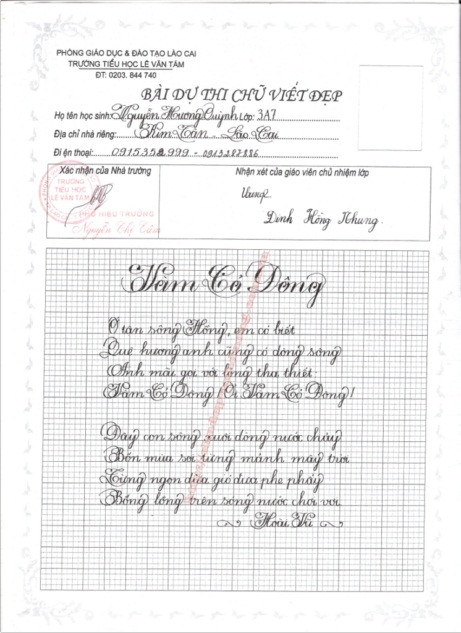 PHÒNG GIÁO DỤC & ĐÀO TẠO LÀO CAI
TRƯỜNG TIỂU HỌC LÊ VĂN TÁM
ĐT: 0203. 844 740
BÀI DỰ THI CHỮ VIẾT ĐẸP
Họ tên học sinh: Nguyễn Hương Quỳnh Lớp: 3A7
Địa chỉ nhà riêng: Kim Tân - Lào Cai
Điện thoại: 0915352999 - 0913287886
Xác nhận của Nhà trường
Nhận xét của giáo viên chủ nhiệm lớp
TRƯỜNG
TIỂU HỌC
LÊ VĂN TÁM
PHÓ HIỆU TRƯỞNG
Nguyễn Thị Cẩm
Đinh Hồng Nhung.
Vàm Cỏ Đông
Ở tận sông Hồng, em có biết
Quê hương anh cũng có dòng sông
Anh mãi gọi với lòng tha thiết
Vàm Cỏ Đông! Ơi Vàm Cỏ Đông!
Đây con sông xuôi dòng nước chảy
Bốn mùa soi từng mảnh mây trời
Từng ngọn dừa gió đưa phe phẩy
Bóng lồng trên sóng nước chơi vơi
Hoài Vũ